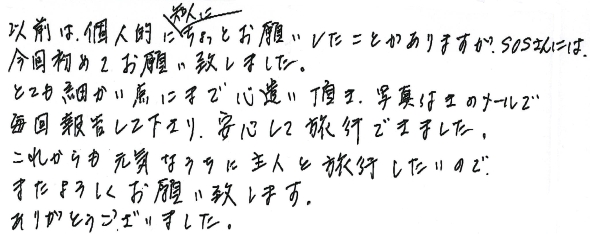 以前は、個人的に知人にちょっとお願いしたことがありますが、SOSさんには、
今回初めてお願い致しました。
とても細かい点にまで心遣い頂き、写真付きのメールで
毎回報告して下さり、安心して旅行できました。
これからも元気なうちに主人と旅行したいので、
またよろしくお願い致します。
ありがとうございました。